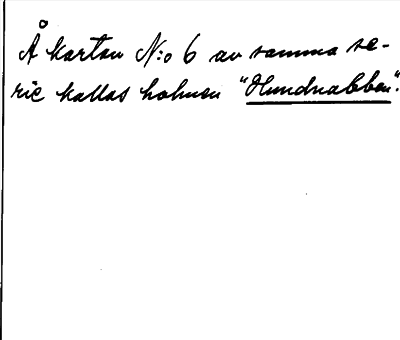 Å kartan N:o 6 av samma se-
rie kallas holmen "Hundnabben".